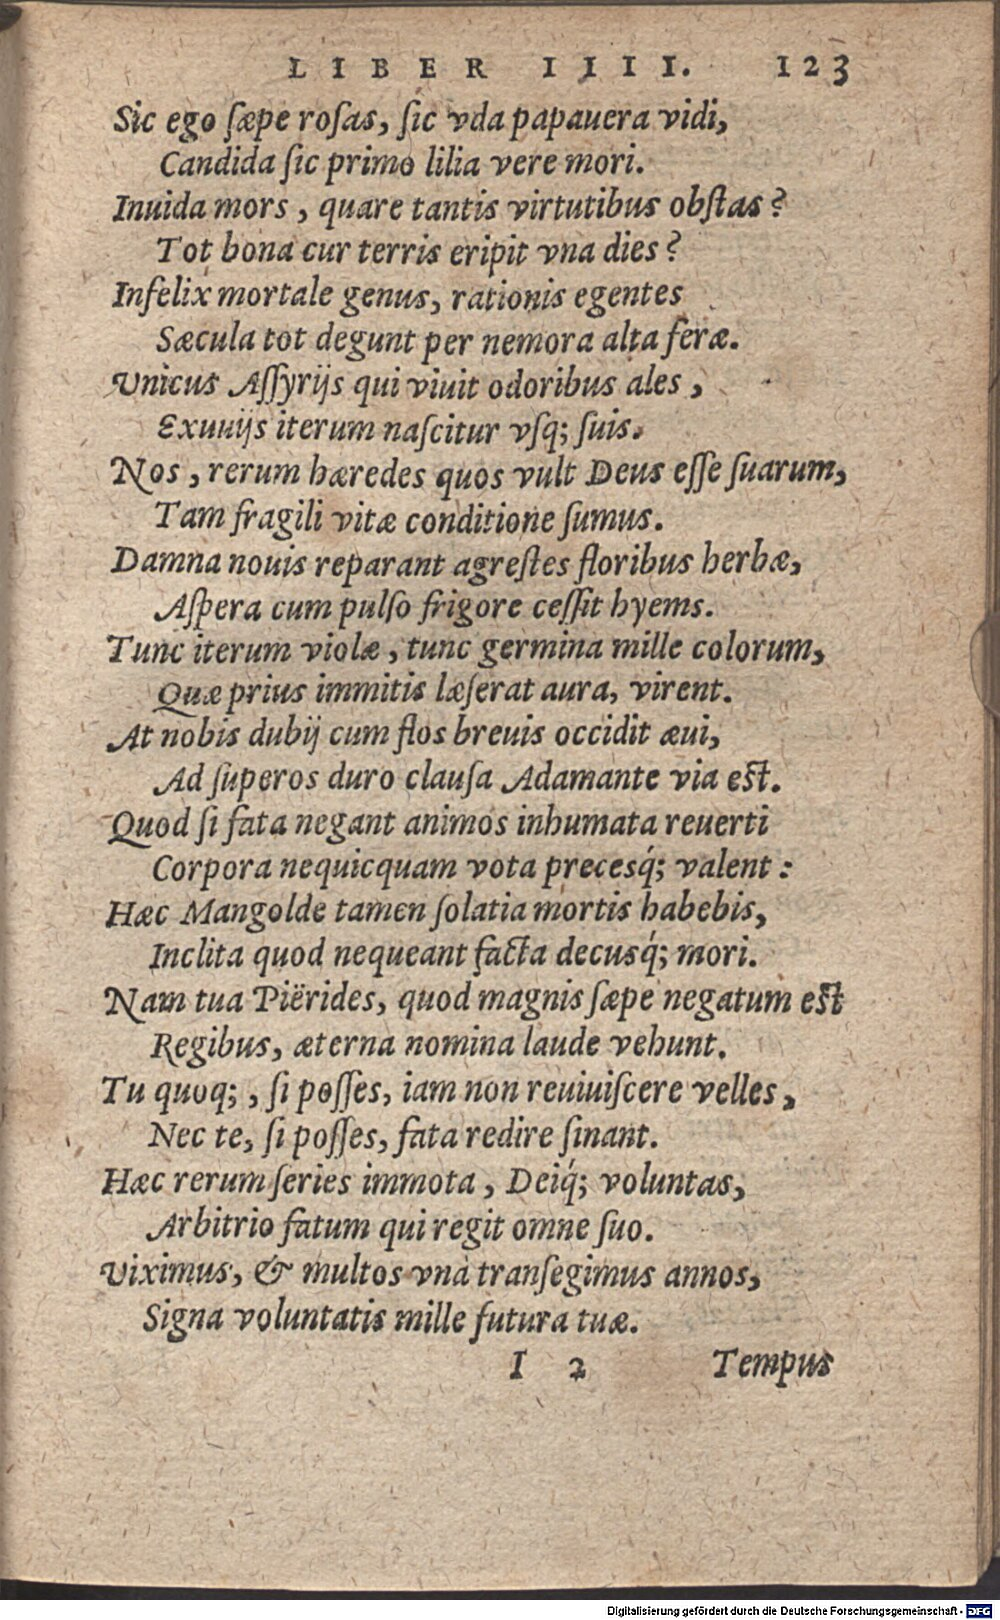 LIBER IIII. 123
Sic ego ſæpe roſas, ſic vda papauera vidi,
Candida ſic primo lilia vere mori.
Inuida mors, quare tantis virtutibus obſtas?
Tot bona cur terris eripit vna dies?
Infelix mortale genus, rationis egentes
Sæcula tot degunt per nemora alta feræ.
Vnicus Aſſyrijs qui viuit odoribus ales,
Exuuijs iterum naſcitur vſq; ſuis.
Nos, rerum hæredes quos vult Deus eſſe ſuarum,
Tam fragili vitæ conditione ſumus.
Damna nouis reparant agreſtes floribus herbæ,
Aſpera cum pulſo frigore ceſſit hyems.
Tunc iterum violæ, tunc germina mille colorum,
Quæ prius immitis læſerat aura, virent.
At nobis dubij cum flos breuis occidit æui,
Ad ſuperos duro clauſa Adamante via eſt.
Quod ſi fata negant animos inhumata reuerti
Corpora nequicquam vota precesq́; valent:
Hæc Mangolde tamen ſolatia mortis habebis,
Inclita quod nequeant facta decusq́; mori.
Nam tua Piërides, quod magnis ſæpe negatum eſt
Regibus, æterna nomina laude vehunt.
Tu quoq;, ſi poſſes, iam non reuiuiſcere velles,
Nec te, ſi poſſes, fata redire ſinant.
Hæc rerum ſeries immota, Deiq́; voluntas,
Arbitrio fatum qui regit omne ſuo.
Viximus, & multos vnà tranſegimus annos,
Signa voluntatis mille futura tuæ.
I 2 Tempus
Digitalisierung gefördert durch die Deutsche Forschungsgemeinschaft - DFG